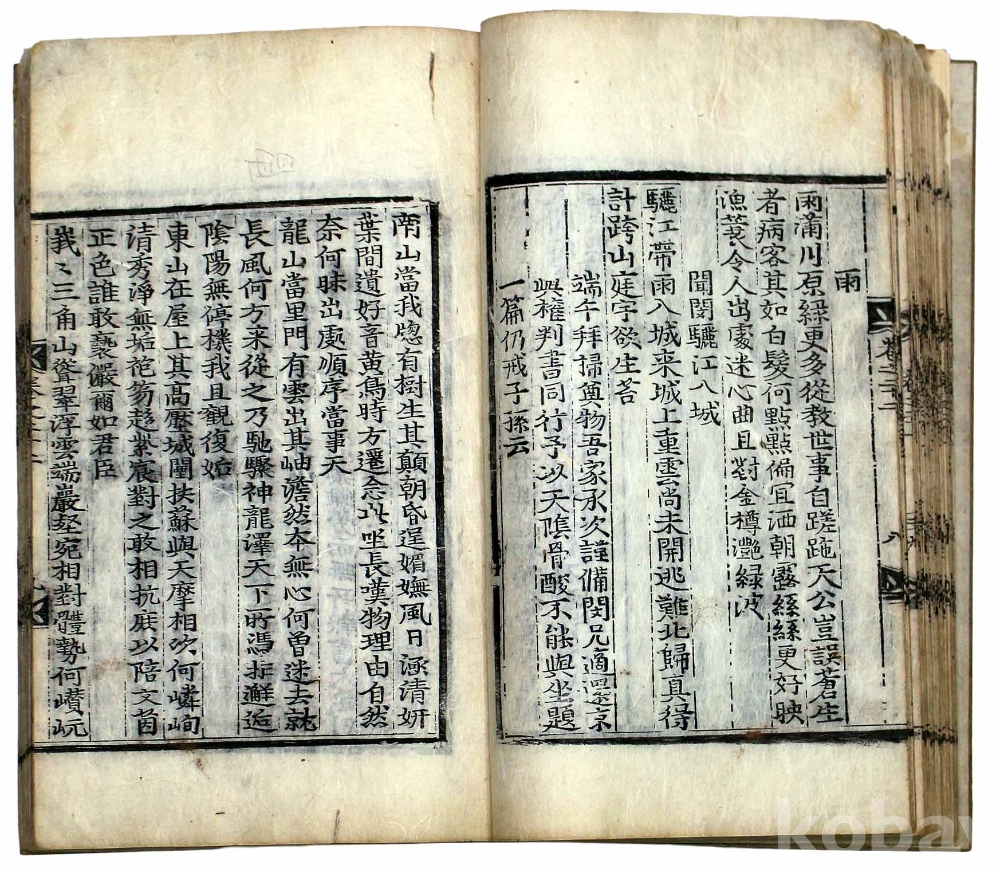 雨
雨滿川原綠更多從教世事自蹉跎天公豈誤蒼生
者病客其如白髮何點點偏宜洒朝露絲絲更好映
漁蓑令人出處迷心曲且對金樽灩緑波
聞閔驪江入城
驪江帶雨入城來城上重雲尚未開逃難北歸真得
計跨山庭宇欲生苔
端午拜掃奠物吾家承次謹備閔兄適還京
與權判書同行予以天陰骨酸不能與坐題
一篇仍戒子孫云
南山當我㥠有樹生其顛朝昏逞媚嫵風日添清妍
葉間遺好音黃鳥時方遷念此坐長嘆物理由自然
奈何昧出處順序當事天
龍山當里門有雲出其岫澹然本無心何曾迷去就
長風何方来從之乃馳驟神龍澤天下所馮非邂逅
陰陽無停機我且觀復始
東山在屋上其高壓城闉扶蘇與天摩相欢何嶙峋
清秀淨無垢袍笏趍紫宸對之敢相抗庶以陪文茵
正色誰敢褻儼爾如君臣
峩〻三角山聳翠浮雲端巖壑宛相對體勢何巑岏
卷之二十二
八